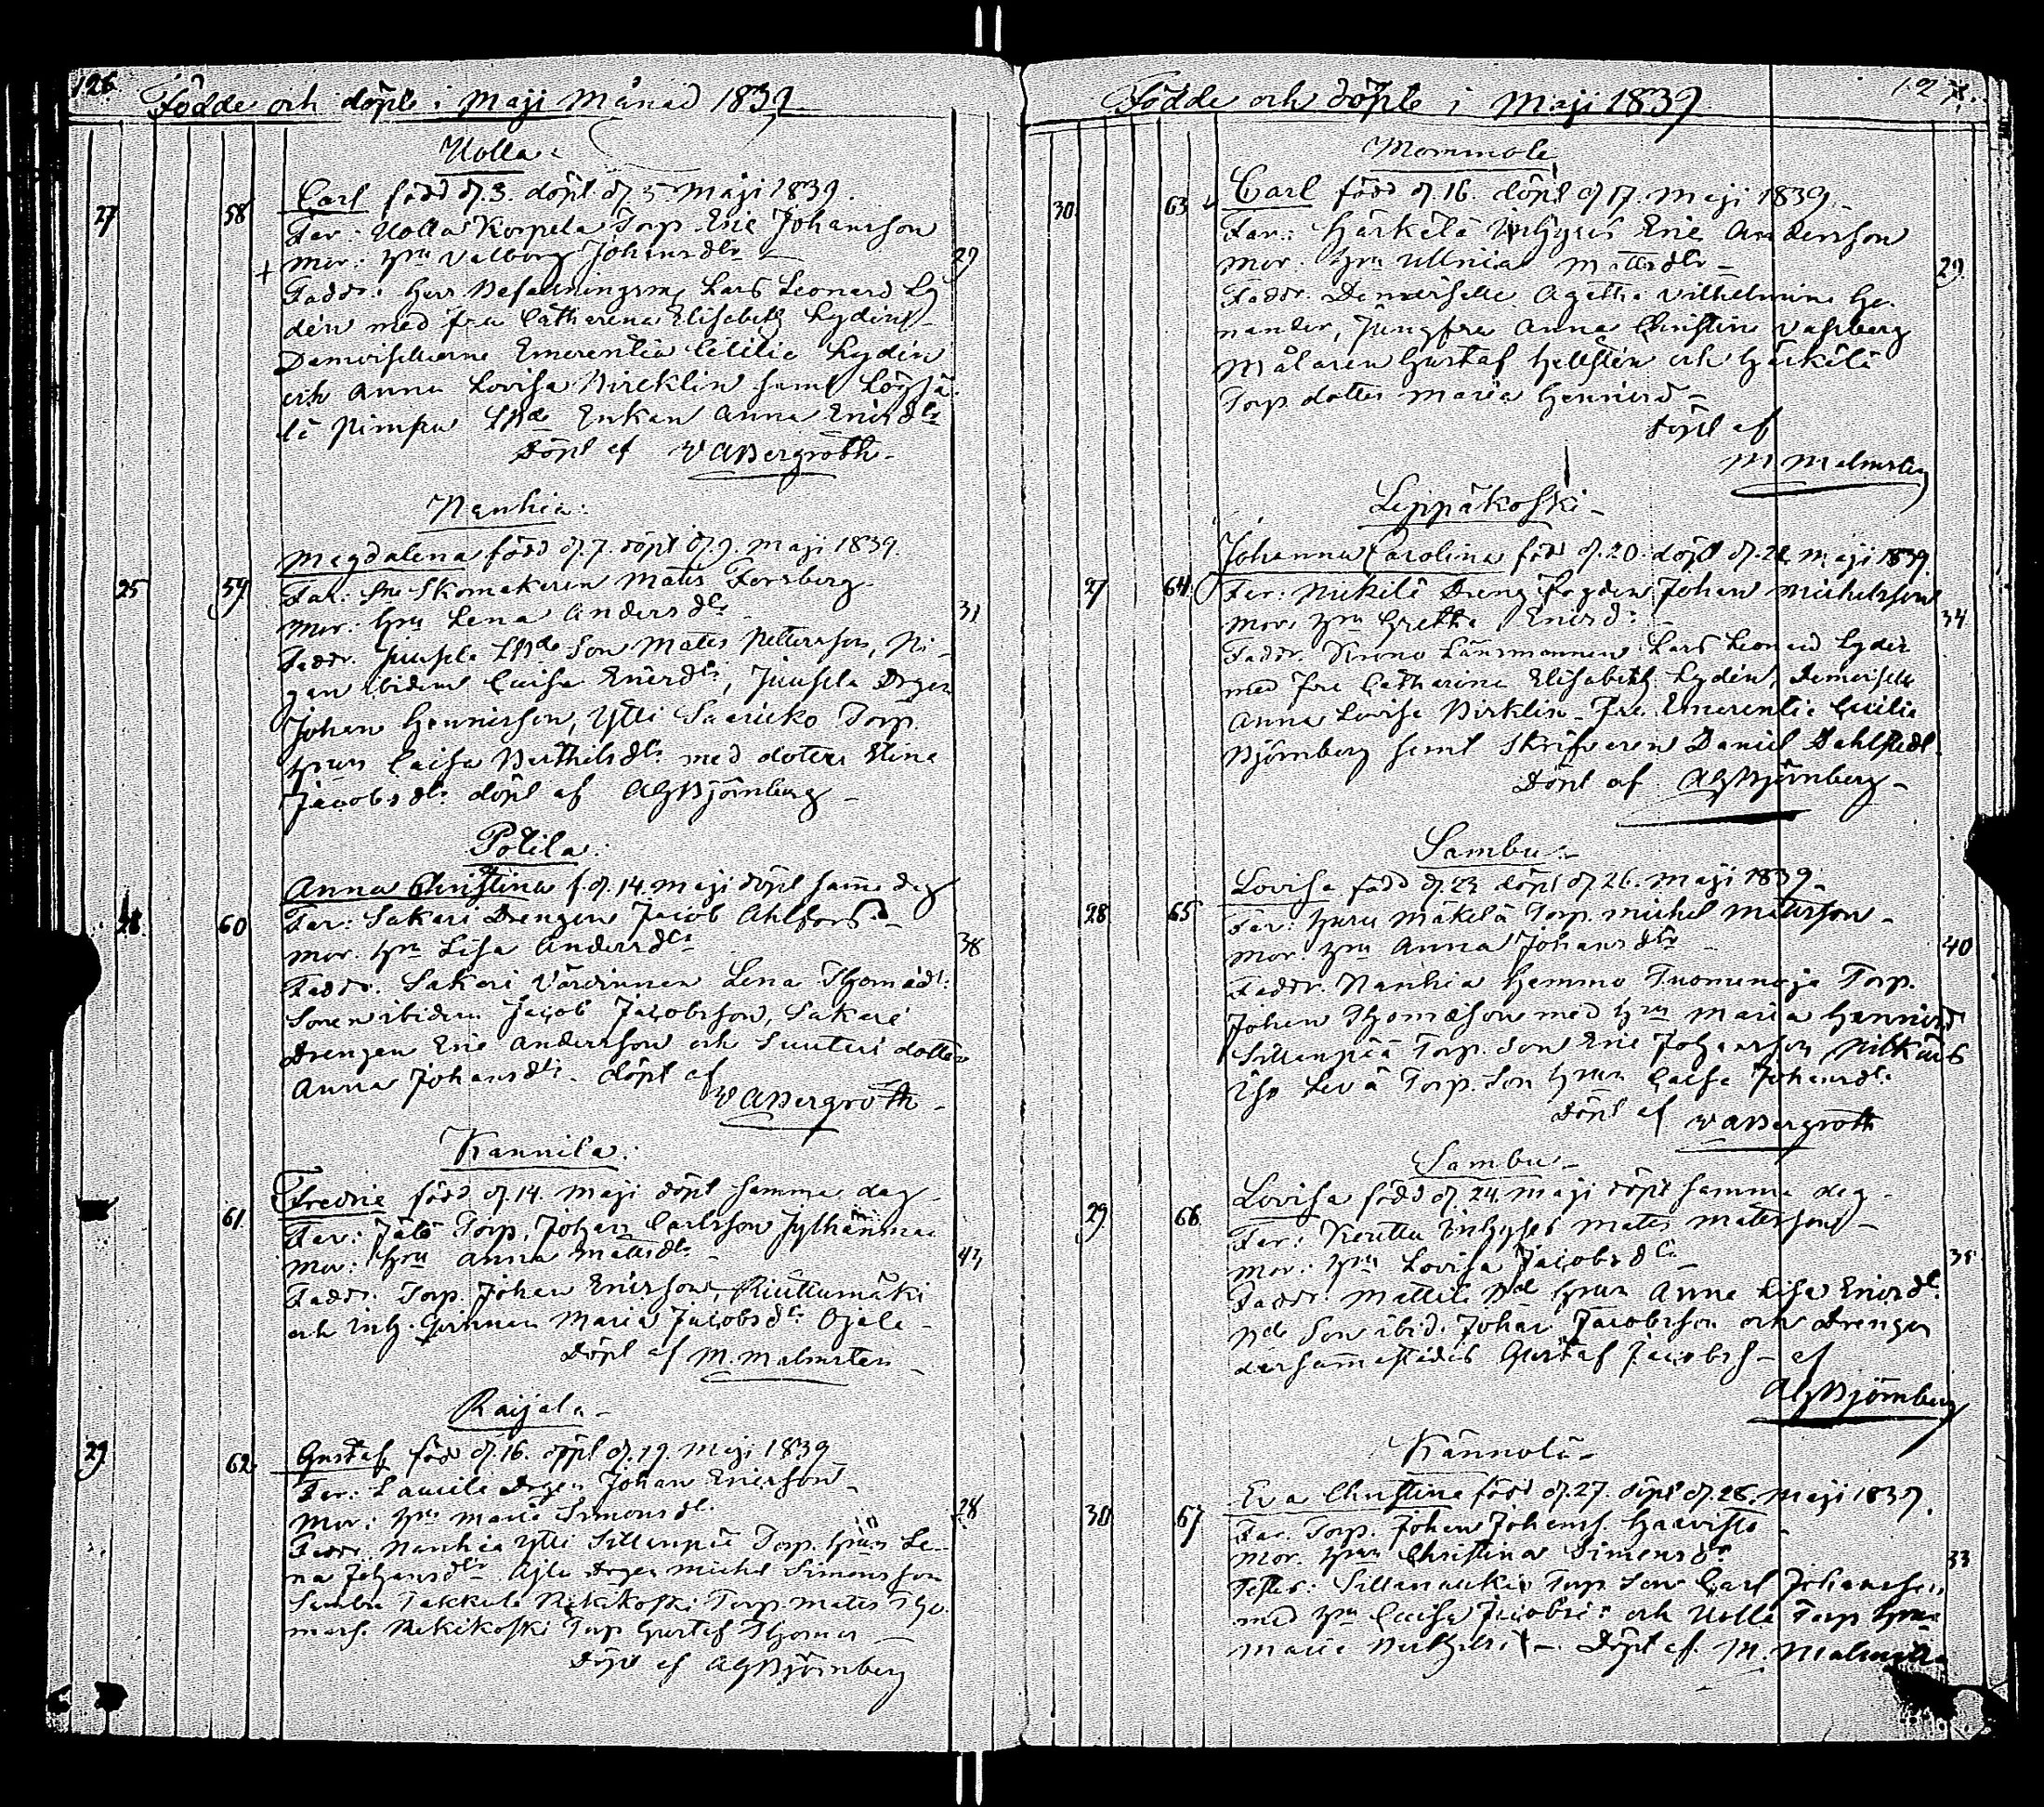 126
Födde och döpte i Maji Månad 1839
Uolla
27 58 Carl född d. 3. döpt d. 5 Maji 1839.
Far: Uolla Korpela Torp. Eric Johansson
Mor: Hru Valborg Johansdtr 29
Faddr: Herr Befallningsm Lars Leonard Ly
dén med fru Catharina Elisabeth Lydén
Demoisellerna Emerentia Cecilia Lydén
och Anna Lovisa Bircklin samt
Enkan Anna Ericsdtr
Döpt af V A Bergroth
Nanhia:
Magdalena född d. 7. döpt d. 9. Maji 1839.
25 59 Far: Skomakaren Matts Forsberg
Mor: Hru Lena Andersdtr 31
Faddr. Juusela Son Matts Pettersson, Pi
gan ibidem Caisa Ericsdtr, Juusela Drgen
Johan Henricsson, Ylli Saaricko Torp.
Hrun Caisa Berthilsdtr med dotren Stina
Jacobsdtr döpt af AGBjörnberg
Potila:
Anna Christina f. d. 14. Maji döpt samma dag
28 60 Far: Sakari Drengen Jacob Ahlfors
Mor. Hru Lisa Andersdtr 38
Faddr. Sakari Värdinnan Lena Thomasdr.
Sonen ibidem Jacob Jacobsson, Sakari
Drengen Eric Andersson och Suuteri dotter
Anna Johansdtr. döpt af
V A Bergroth
Kannila:
Fredric född d. 14. Maji döpt samma dag
61 Far: Torp. Johan Carlsson Jylhänmaa
Mor: Hru Anna Mattsdtr
Faddr: Torp. Johan Ericsson, Riuttumäki
och Inh. Qvinnan Maria Jacobsdtr Ojala
Döpt af M. Malmsten
Raijala
29 62 Gustaf född d. 16. döpt d. 19. Maji 1839
Far: Laurila Drgen Johan Ericsson
Mor: Hru Maria Simonsdtr 28
Faddr. Nanhia Ylli Sillenpää Torp. Hrun Le
na Johansdtr Drgen Michel Simonsson
Sambu Takkula Torp. Matts Tho
mass. Torp Gustaf Thomas
Döpt af AGBjörnberg
127.
Födde och döpte i Maji 1839
Mommola
30. 63 Carl född d. 16. döpt d. 17. Maji 1839
Far: Härkälä Inhyses Eric Andersson
Mor. Hru Ullrica Mattsdtr 29.
Faddr. Demoiselle Agatha Vilhelmina He
nander, Jungfru Anna Christina Vahlberg
Målaren Gustaf Hellstén och Härkälä
Torp dotter Maria Henricsd
Döpt af
M Malmsten
Leppäkoski
Johanna Carolina född d. 20. döpt d. 22. Maji 1839.
27 64 Far: Mickilä Dreng Fogden Johan Michelsson
Mor: Hru Gretha Ericsd: 34
Faddr. Krono Länsmannen Lars Leonard Lydén
med fru Catharina Elisabeth Lydén, Demoiselle
Anna Lovisa Birklin. Fru Emerentia Cecilia
Björnberg samt Skrifvaren Daniel Dahlstedt.
Döpt af AGBjörnberg
Sambu
Lovisa född d. 23 döpt d. 26. Maji 1839
28 65 Far: Mäkelä Torp. Michel Mattsson
Mor. Hru Anna Johansdtr 40
Faddr. Nanhia Hemmo Tuomenoja Torp.
Johan Thomasson med Hru Maria Henricsd
Sillenpää Torp. Son Eric Johansson
Torp. Son Hrun Caisa Johansdtr
Döpt af V A Bergroth
Sambu
Lovisa född d. 24. Maji döpt samma dag
29 66. Far: Kouttu Inhyses Matts Mattsson
Mor: Hru Lovisa Jacobsdtr
Faddr. Mattila Hrun Anna Lisa Ericsdtr.
Son ibid. Johan Jacobsson och Drengen
dersammastädes Gustaf Jacobss af
AGBjörnberg
Kännölä
Eva Christina född d. 27. döpt d. 28. Maji 1839.
30 67 Far. Torp. Johan Johanss. Haavisto
Mor. Hru Christina Simonsdr 33
Sillanaukio Torp Son Carl Johansson
med Hru Caisa Jacobsd: och Uolla Torp Hru
Maria Döpt af. M. Malmsten